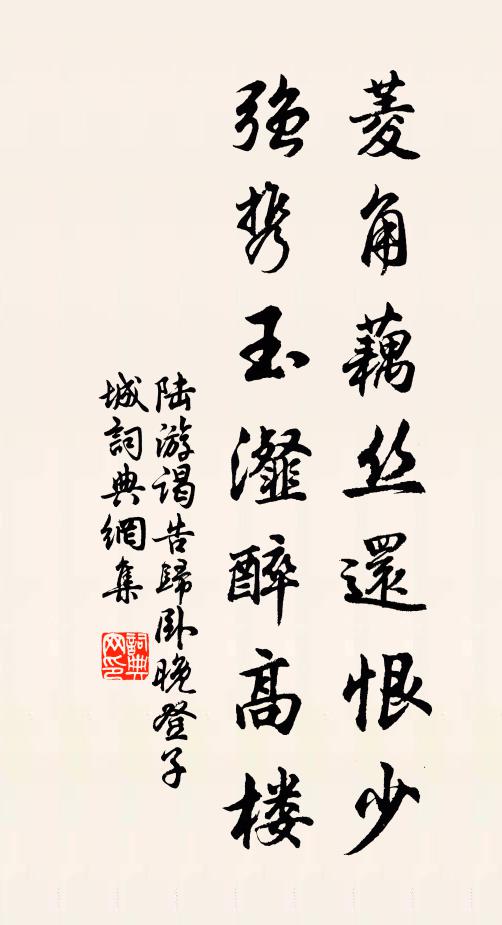 菱角藕丝還恨少
强携玉灔醉高楼
陆游谒告歸卧晚登子
城詞典網集
詞典